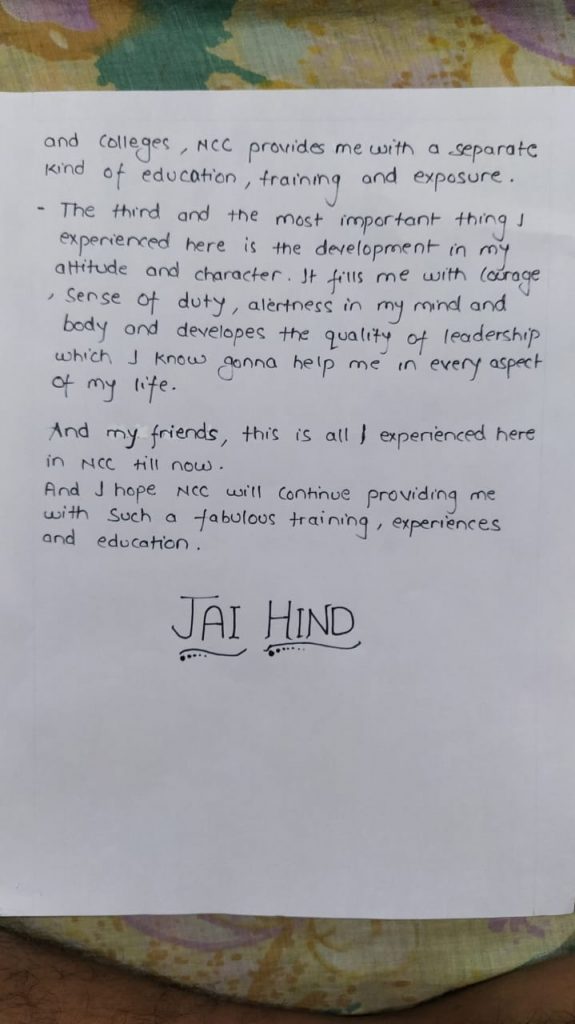 and Colleges, NCC provides me with a separate
kind of education, training and exposure.
- The third and the most important thing I
experienced here is the development in my
attitude and character. It fills me with Courage
, Sense of duty, alertness in my mind and
body and developes the quality of leadership
which I know gonna help me in every aspect
of my life.
And my friends, this is all I experienced here
in NCC till now.
And I hope NCC will Continue providing me
with Such a fabulous training, experiences
and education.
JAI HIND